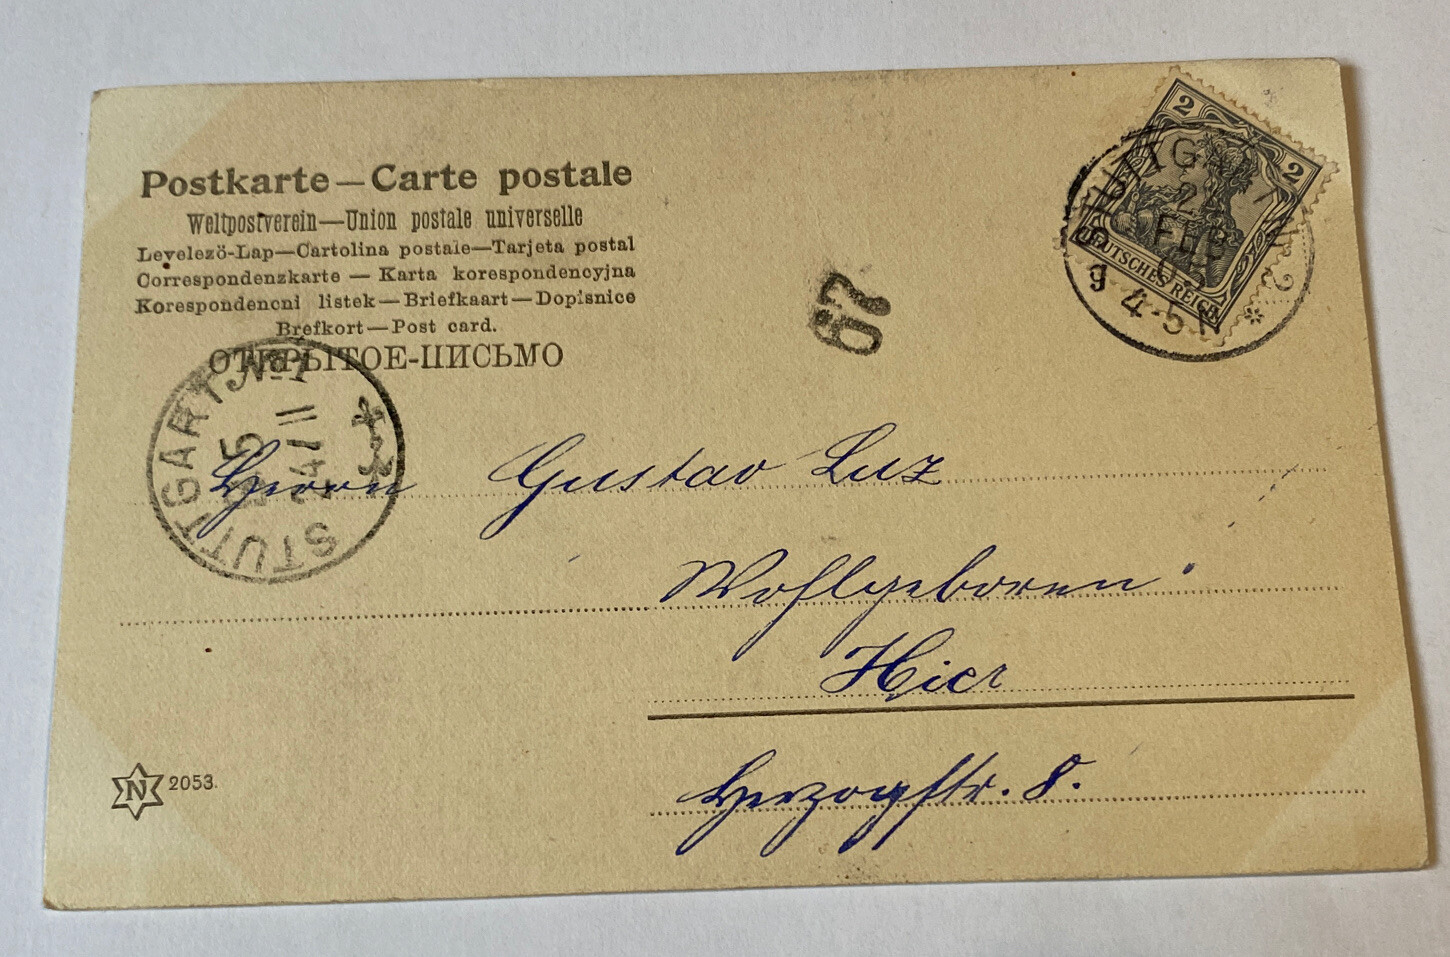 Postkarte — Carte postale
Weltpostverein — Union postale universelle
Levelezö-Lap — Cartolina postale — Tarjeta postal
Correspondenzkarte — Karta korespondencyjna
Korespondencni listek — Briefkaart — Dopisnice
Brefkort — Post card.
ОТКРЫТОЕ-ПИСЬМО
2
2
DEUTSCHES REICH
FEB
9 4-5 N
67
STUTTGART No 1
24/II
Herrn Gustav Luz
Wohlgeboren
Hier
Herzogstr. 8.
N 2053.